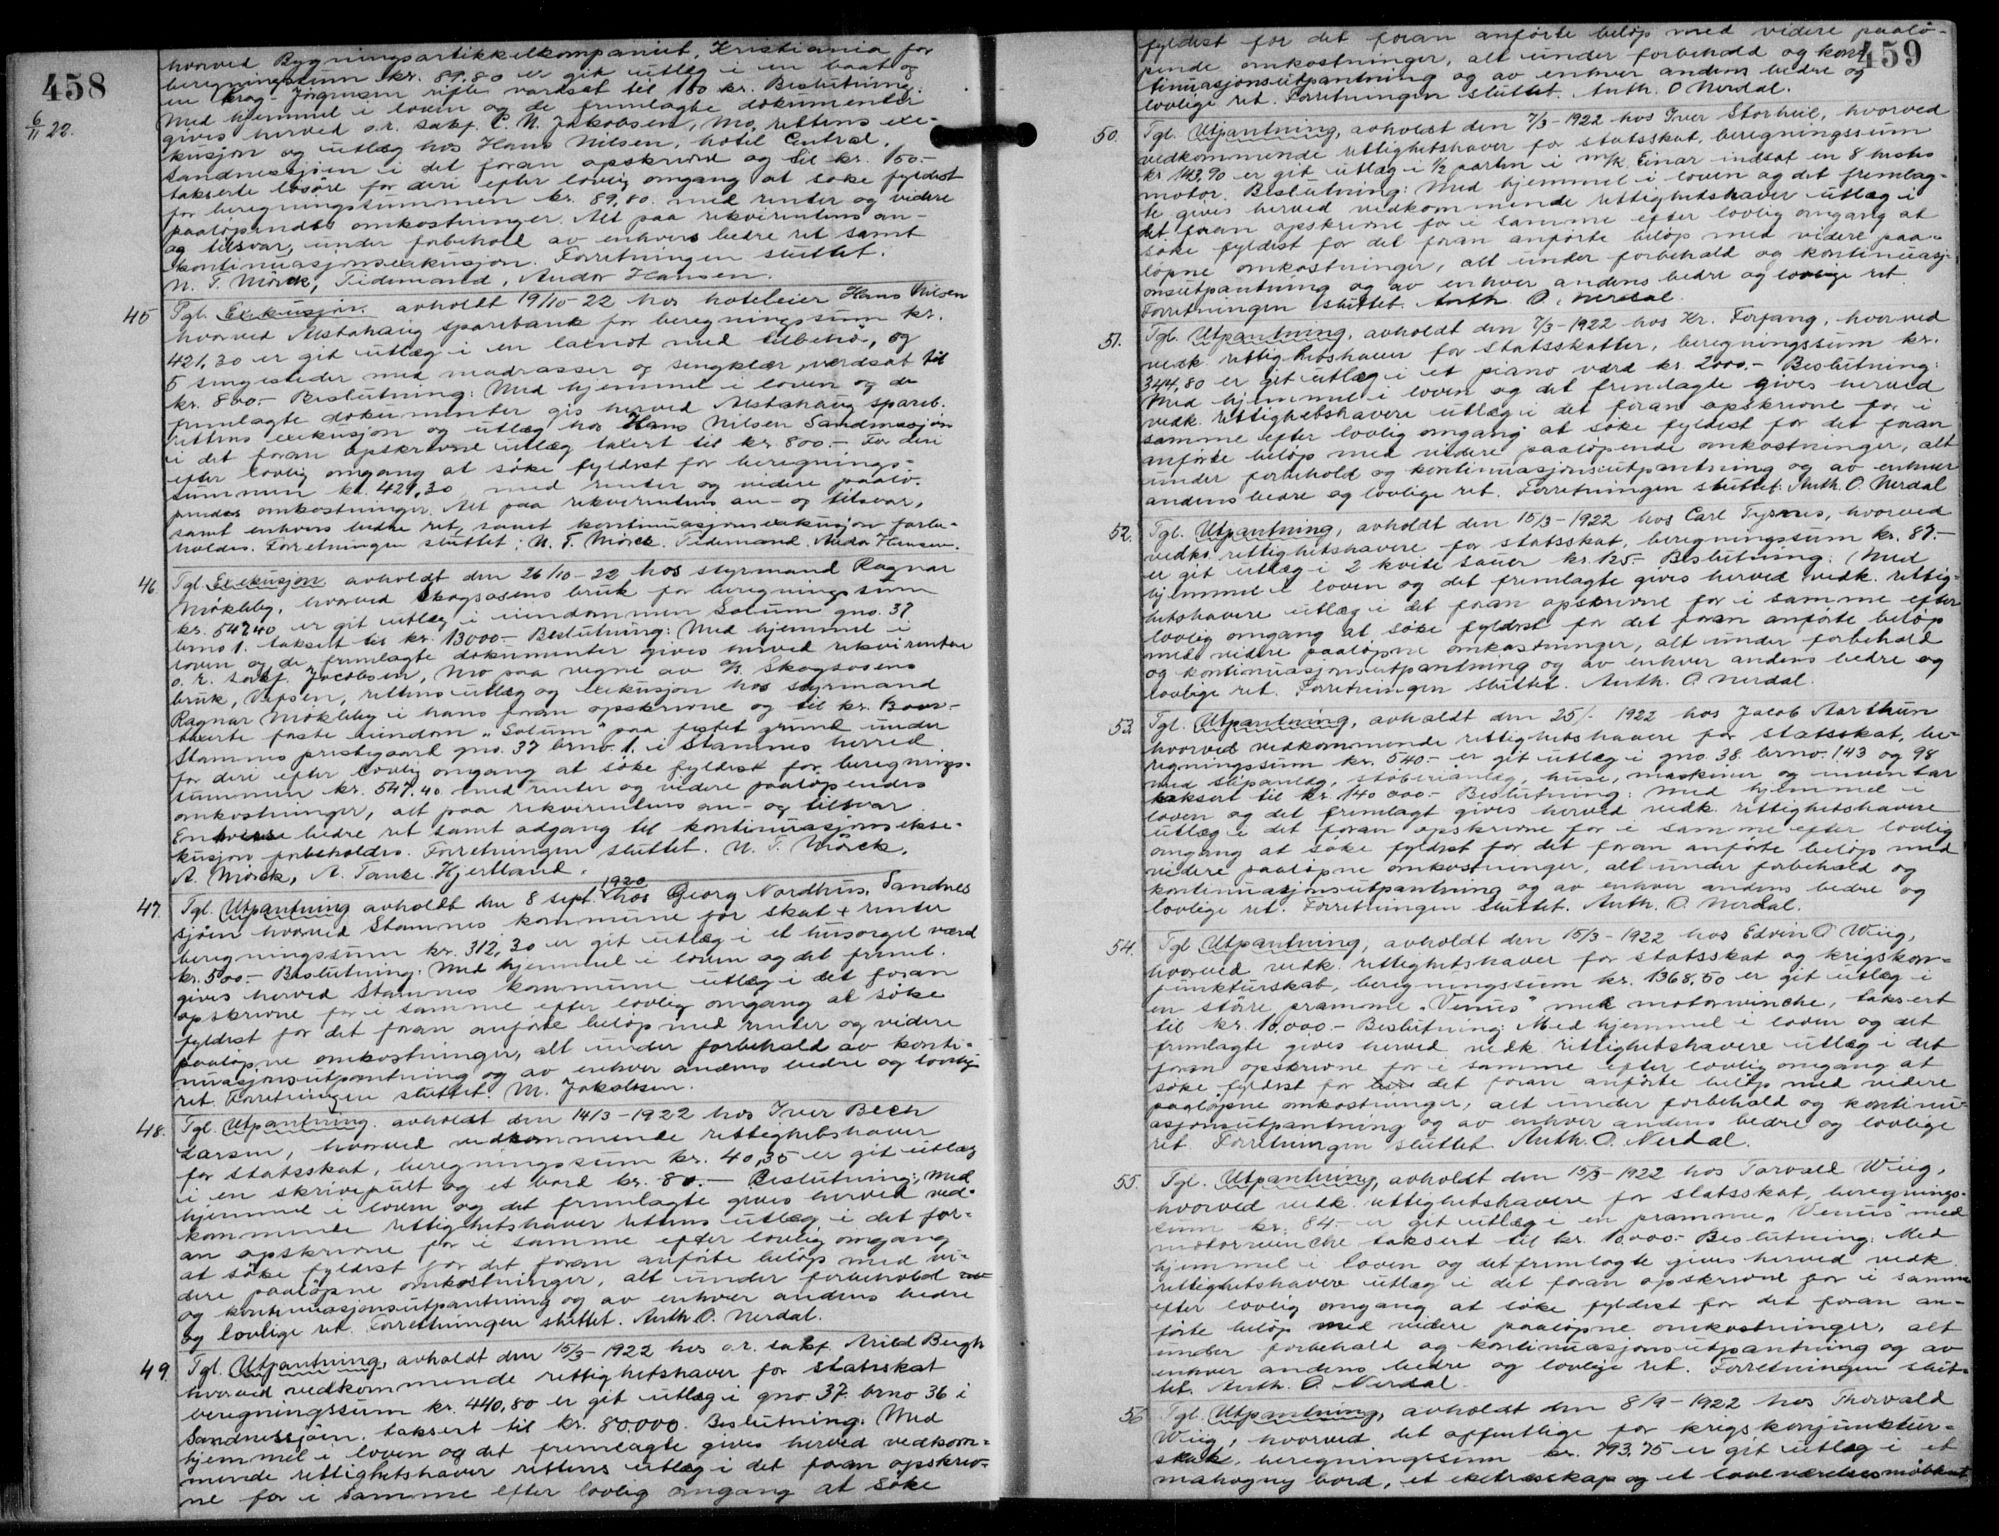 458
6/11 22.
hvorved Bygningsartikkelkompaniet, Kristiania for
beregningssum kr. 89,80 er git utlæg i en baat og
en Krag-Jørgensen rifle værdsat til 150 kr. Beslutning:
Med hjemmel i loven og de fremlagte dokumenter
gives herved o.r. sakf. C. N. Jakobsen, Mo, rettens exe-
kusjon og utlæg hos Hans Nilsen, hotel Central,
Sandnessjøen i det foran opskrevne og til kr. 150.-
takserte løsøre for deri efter lovlig omgang at søke fyldest
for beregningssummen kr. 89,80. med renter og videre
paaløpende omkostninger. Alt paa rekvirentens an-
og tilsvar, under forbehold av enhvers bedre ret samt
kontinuasjonsexekusjon. Forretningen sluttet.
N. T. Mörck, Tidemand, Andor Hansen.
45 Tgl. Exekusjon avholdt 19/10-22 hos hoteleier Hans Nilsen
hvorved Alstahaug sparebank for beregningssum kr.
421,30 er git utlæg i en med tilbehör, og
5 sengesteder med madrasser og sengklær, værdsat til
kr. 800.- Beslutning: Med hjemmel i loven og de
fremlagte dokumenter gis herved Alstahaug spareb.
rettens exekusjon og utlæg hos Hans Nilsen Sandnessjøen
i det foran opskrevne utlæg taxert til kr. 800.- for deri
efter lovlig omgang at söke fyldest for beregnings-
summen kr. 421,30 med renter og videre paalø-
pende omkostninger. Alt paa rekvirentens an- og tilsvar,
samt enhvers bedre ret, samt kontinuasjonsexekusjon forbe-
holdes. Forretningen sluttet: N. T. Mörck. Tidemand. Andor Hansen.
46. Tgl. Exekusjon avholdt den 26/10-22 hos styrmand Ragnar
Mökleby, hvorved Skogsosens bruk for beregningssum
kr. 547.40 er git utlæg i eiendommen Solum gno. 37
brno 1. taksert til kr. 13000.- Beslutning: Med hjemmel i
loven og de fremlagte dokumenter gives herved rekvirenten
o. r. sakf. Jacobsen, Mo paa vegne av a/s Skogsosens
bruk, Vefsen, rettens utlæg og exekusjon hos styrmand
Ragnar Mökleby i hans foran opskrevne og til kr.
takserte faste eiendom "Solum" paa festet grund under
Stamnes prestegaard gno. 37 brno. 1. i Stamnes herred
for deri efter lovlig omgang at söke fyldest for beregnings-
summen kr. 547.40 med renter og videre paaløpendes
omkostninger, alt paa rekvirentens an- og tilsvar
Enhvers bedre ret samt adgang til kontinuasjonsekse-
kusjon forbeholdes. Forretningen sluttet. N. T. Mörck.
A. Mörck, A. Tanke Hjertland.
47. Tgl. Utpantning avholdt den 8 sept. 1920 hos Georg Nordhus, Sandnes
sjöen hvorved Stamnes kommune for skat + renter
beregningssum kr. 312,30 er git utlæg i et husorgel værd
kr. 500.- Beslutning: Med hjemmel i loven og det freml.
gives herved Stamnes kommune utlæg i det foran
opskrevne for i samme efter lovlig omgang at söke
fyldest for det foran anførte beløp med renter og videre
paaløpne omkostninger, alt under forbehold av konti-
nuasjonsutpantning og av enhver andens bedre og lovlig
ret. Forretningen sluttet. M. Jakobsen.
48. Tgl. Utpantning avholdt den 14/3-1922 hos Iver Bech
Larsen, hvorved vedkommende rettighetshaver
for statsskat, beregningssum kr. 40,35 er git utlæg
i en skrivepult og et bord kr. 80.- Beslutning: Med
hjemmel i loven og det fremlagte gives herved ved-
kommende rettighetshaver rettens utlæg i det for-
an opskrevne for i samme efter lovlig omgang
at söke fyldest for det foran anførte beløp med vi-
dere paaløpne omkostninger, alt under forbehold
og kontinuasjonsutpantning og av enhver andens bedre
og lovlige ret. Forretningen sluttet. Anth. O. Nerdal.
49. Tgl. Utpantning, avholdt den 15/3-1922 hos o.r. sakf. Arild Bergh
hvorved vedkommende rettighetshaver for statsskat
beregningssum kr. 440,80 er git utlæg i gno 37. brno 36 i
Sandnessjöen. taksert til kr. 80.000. Beslutning: Med
hjemmel i loven og det fremlagte gives herved vedkom-
mende rettighetshaver rettens utlæg i det foran opskrev-
ne for i samme efter lovlig omgang at söke
459
fyldest for det foran anförte beløp med videre paalø-
pende omkostninger, alt under forbehold og kon-
tinuasjonsutpantning og av enhver andens bedre og
lovlige ret. Forretningen sluttet. Anth. O Nerdal.
50. Tgl. Utpantning, avholdt den 7/3-1922 hos Iver Storheil, hvorved
vedkommende rettighetshaver for statsskat, beregningssum
kr 143,90 er git utlæg i 1/2 parten i m/k Einar indsat en 8 hests
motor. Beslutning: Med hjemmel i loven og det fremlag-
te gives herved vedkommende rettighetshaver utlæg i
det foran opskrevne for i samme efter lovlig omgang at
söke fyldest for det foran anförte beløp med videre paa-
løpne omkostninger, alt under forbehold og kontinuasj-
onsutpantning og av enhver andens bedre og lovlige ret.
Forretningen sluttet. Anth. O. Nerdal.
51. Tgl. Utpantning, avholdt den 7/3-1922 hos Kr. Forfang, hvorved
vedk. rettighetshaver for statsskatter, beregningssum kr.
344,80 er git utlæg i et piano værd kr. 2000.- Beslutning:
Med hjemmel i loven og det fremlagte gives herved
vedk. rettighetshavere utlæg i det foran opskrevne for i
samme efter lovlig omgang at söke fyldest for det foran
anförte beløp med videre paaløpende omkostninger, alt
under forbehold og kontinuasjonsutpantning og av enhver
andens bedre og lovlige ret. Forretningen sluttet: Anth. O. Nerdal
52. Tgl. Utpantning, avholdt den 15/3-1922 hos Carl, hvorved
vedk. rettighetshavere for statsskat, beregningssum kr. 87.-
er git utlæg i 2 kvite sauer kr. 125.- Beslutning: Med
hjemmel i loven og det fremlagte gives herved vedk. rettig-
hetshavere utlæg i det foran opskrevne for i samme efter
lovlig omgang at söke fyldest for det foran anførte beløp
med videre paaløpne omkostninger, alt under forbehold
og kontinuasjonsutpantning og av enhver andens bedre og
lovlige ret. Forretningen sluttet. Anth. O. Nerdal.
53. Tgl. Utpantning, avholdt den 25/- 1922 hos Jacob Aarthun
hvorved vedkommende rettighetshavere for statsskat, be-
regningssum kr. 540.- er git utlæg i gno 38. brno. 143 og 98
med slipanlæg, støberianlæg, huse, maskiner og inventar
taksert til kr. 140 000.- Beslutning: Med hjemmel i
loven og det fremlagt gives herved vedk. rettighetshavere
utlæg i det foran opskrevne for i samme efter lovlig
omgang at søke fyldest for det foran anförte beløp med
videre paaløpne omkostninger, alt under forbehold og
kontinuasjonsutpantning og av enhver andens bedre og
lovlige ret. Forretningen sluttet. Anth. O. Nerdal.
54. Tgl Utpantning, avholdt den 15/3-1922 hos Edvin O Wiig,
hvorved vedk. rettighetshaver for statsskat og krigskon-
junkturskat, beregningssum kr. 1368,50 er git utlæg i
en större pramme "Venus" med motorwinche, taksert
til kr. 10.000.- Beslutning: Med hjemmel i loven og det
fremlagte gives herved vedk. rettighetshavere utlæg i det
foran opskrevne for i samme efter lovlig omgang at
söke fyldest for det foran anførte beløp med videre
paaløpne omkostninger, alt under forbehold og kontinu-
asjonsutpantning og av enhver andens bedre og lovlige
ret Forretningen sluttet Anth. O. Nerdal.
55. Tgl. Utpantning, avholdt den 15/3-1922 hos Torvald Wiig,
hvorved vedk. rettighetshavere for statsskat, beregnings-
sum kr. 84.- er git utlæg i en pramme, "Venus" med
motorwinche taksert til kr. 10.000.- Beslutning: Med
hjemmel i loven og det fremlagte gives herved vedk.
rettighetshaver utlæg i det foran opskrevne for i samme
efter lovlig omgang at søke fyldest for det foran an-
førte beløp med videre paaløpne omkostninger, alt
under forbehold og kontinuasjonsutpantning og av
enhver andens bedre og lovlige ret. Forretningen slut-
tet. Anth. O. Nerdal.
56 Tgl. Utpantning, avholdt den 8/9-1922 hos Thorvald
Wiig, hvorved det offentlige for krigskonjunktur-
skat, beregningssum kr. 793.75 er git utlæg i et
mahogny bord, et ekteskap og et